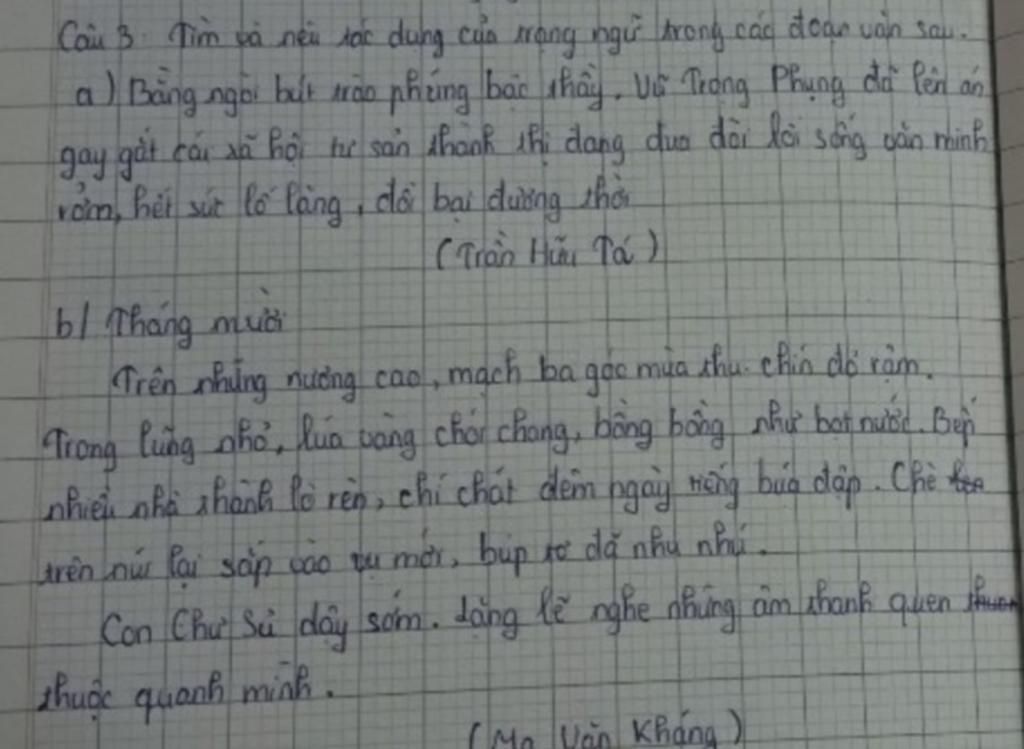 Câu 3. Tìm và nêu tác dụng của trạng ngữ trong các đoạn văn sau.
a) Bằng ngòi bút trào phúng bậc thầy. Vũ Trọng Phụng đã lên án
gay gắt cái xã hội tư sản thành thị đang đua đòi lối sống văn minh
rởm, hết sức lố lăng, đồi bại đương thời
(Trần Hữu Tá)
b/ Tháng mười
Trên những nương cao, mạch ba góc mùa thu chín đỏ rậm.
Trong lũng nhỏ, lúa vàng chói chang, bồng bồng như bọt nước. Bếp
nhiều nhà thành lò rèn, chí chát đêm ngày tiếng búa đập. Chè
trên núi lại sắp vào vụ mới, búp tơ đã nhu nhú.
Con Chư Sủ dậy sớm. lắng lẽ nghe những âm thanh quen
thuộc quanh mình.
(Ma Văn Kháng)